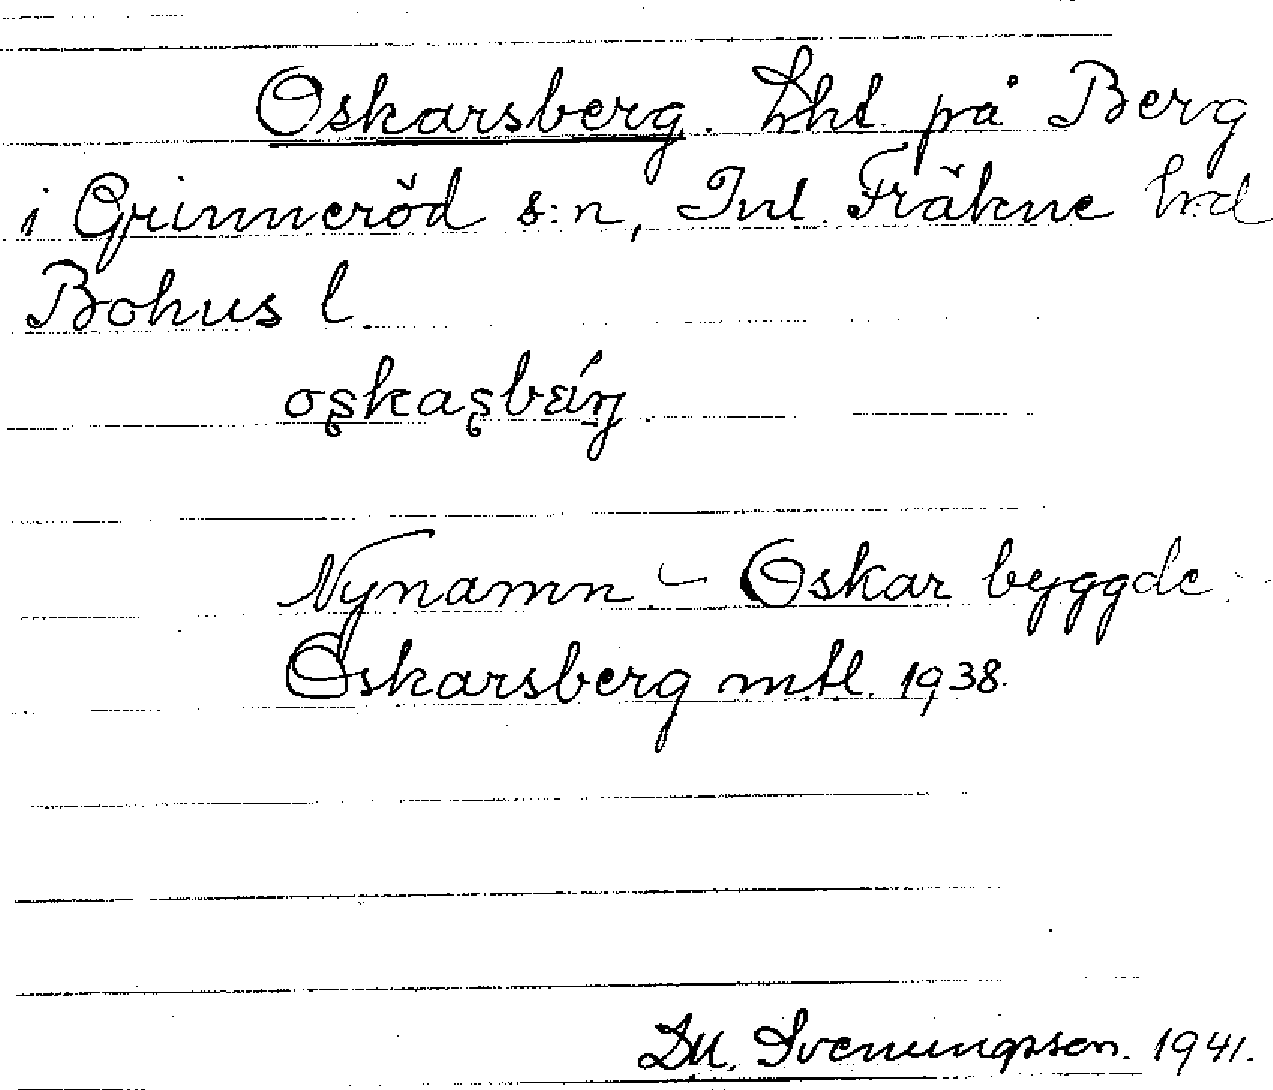 Oskarsberg. Lht på Berg
i Grinneröd s:n, Inl. Fräkne hd
Bohus l
Nynamn - Oskar byggde
Oskarsberg mtl. 1938.
Svenungsson. 1941.